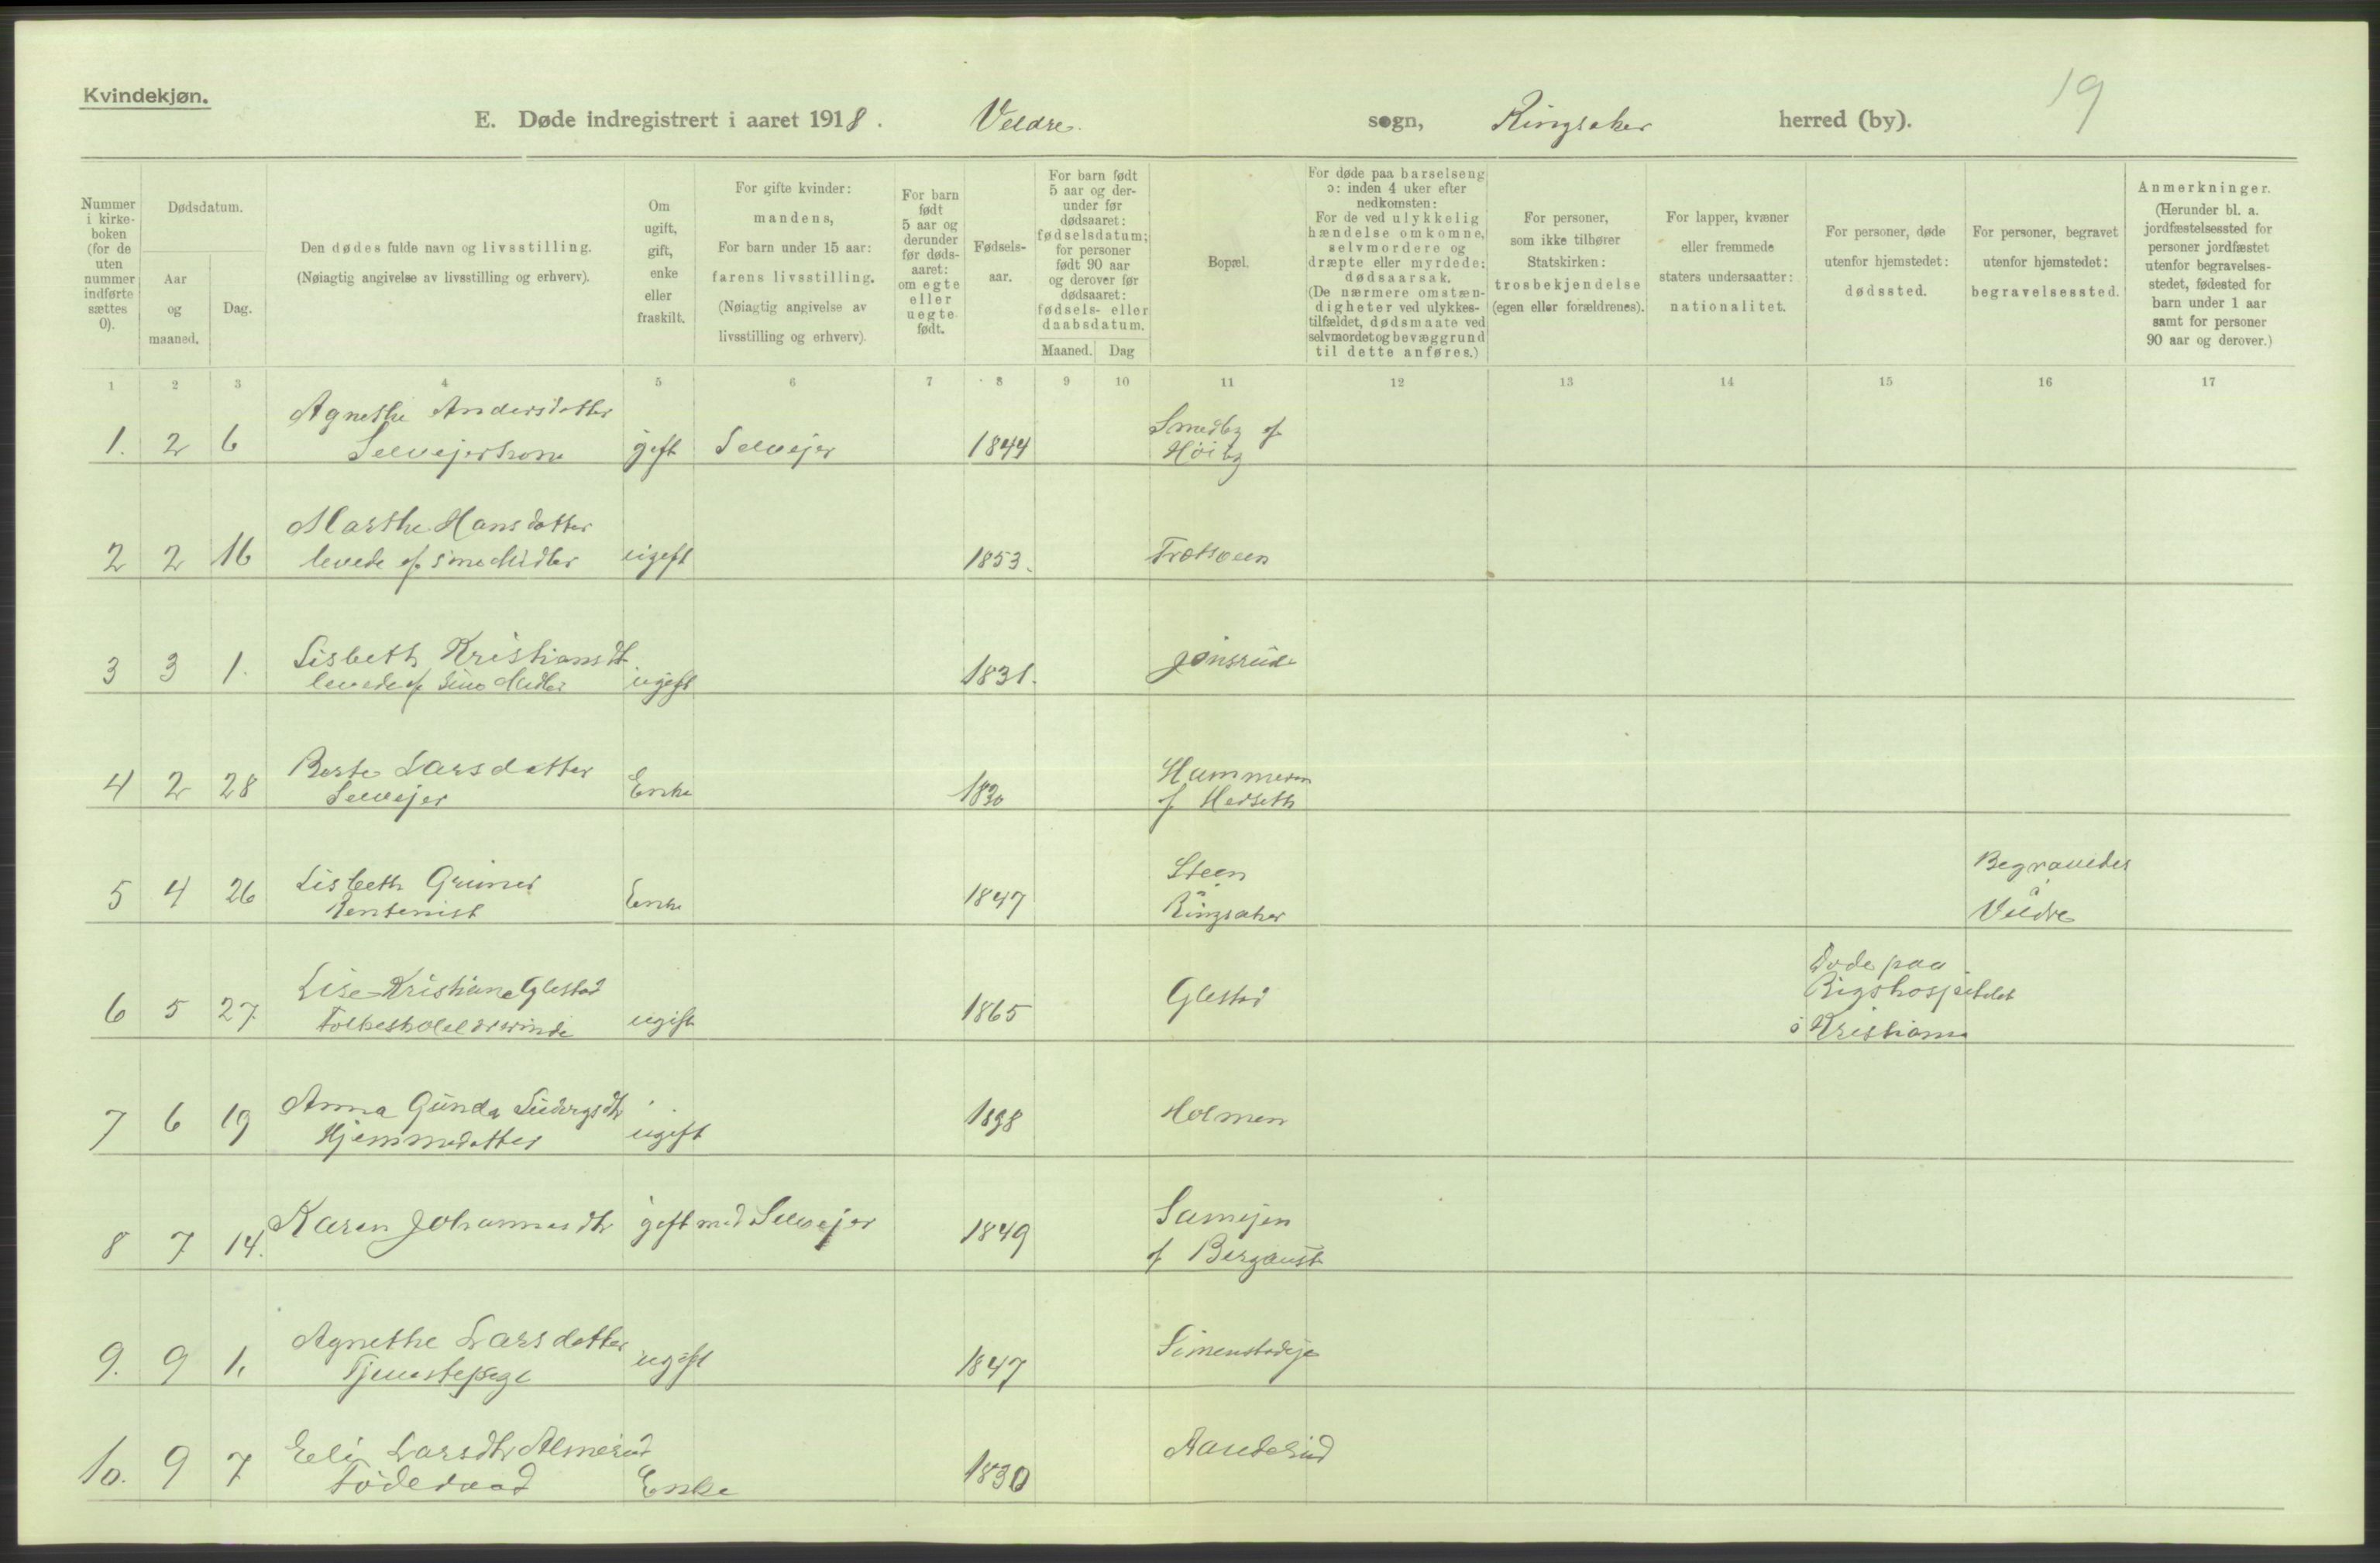 Kvindekjøn.
19
E. Døde indregistrert i aaret 1918. Veldre. sogn, Ringsaker herred (by).
Nummer i kirkeboken (for de uten nummer indførte sættes 0).
Dødsdatum.
Aar og maaned.
Dag.
Den dødes fulde navn og livsstilling.
(Nøiagtig angivelse av livsstilling og erhverv).
Om ugift, gift, enke eller fraskilt.
For gifte kvinder: mandens,
For barn under 15 aar: farens livsstilling.
(Nøiagtig angivelse av livsstilling og erhverv).
For barn født 5 aar og derunder før dødsaaret: om egte eller uegte født.
Fødselsaar.
For barn født 5 aar og derunder før dødsaaret: fødselsdatum; for personer født 90 aar og derover før dødsaaret: fødsels- eller daabsdatum.
Maaned. Dag
Bopæl.
For døde paa barselseng ɔ: inden 4 uker efter nedkomsten:
For de ved ulykkelig hændelse omkomne, selvmordere og dræpte eller myrdede: dødsaarsak.
(De nærmere omstændigheter ved ulykkestilfældet, dødsmaate ved selvmordet og bevæggrund til dette anføres.)
For personer, som ikke tilhører Statskirken: trosbekjendelse (egen eller forældrenes).
For lapper, kvæner eller fremmede staters undersaatter: nationalitet.
For personer, døde utenfor hjemstedet: dødssted.
For personer, begravet utenfor hjemstedet: begravelsessted.
Anmerkninger.
(Herunder bl. a. jordfæstelsessted for personer jordfæstet utenfor begravelsesstedet, fødested for barn under 1 aar samt for personer 90 aar og derover.)
1 2 3 4 5 6 7 8 9 10 11 12 13 14 15 16 17
Agnethe Andersdatter Smedby af
1. 2 6 Selveierkone gift Selvejer 1844 Høiby
Marthe Hansdatter
2 2 16 levede af sine Midler ugift 1853.
Lisbeth Kristiansdt. Jønsrud
3 3 1. levede af sine Midler ugift 1831.
Berte Larsdatter Hammeren
4 2 28 Selvejer Enke 1830 af Herseth
Lisbeth Grüner Steen Begravedes
5 4 26 Rentenist Enke 1847 Ringsaker i Veldre
Lise Kristiane Glestad Glestad Døde paa Rigshospitalet
6 5 27 Folkeskolelærerinde ugift 1865 i Kristiania
Anna Gunda Ludvigsdtr
7 6 19 Hjemmedatter ugift 1898 Holmen
Karen Johannesdtr gift med Selvejer 1849
8 7 14. af Bergaust
Agnethe Larsdatter Simenstadeje
9. 9 1. Tjenestepige ugift 1847
Eli Larsdtr Almerud
10. 9 7 Føderaad Enke 1830